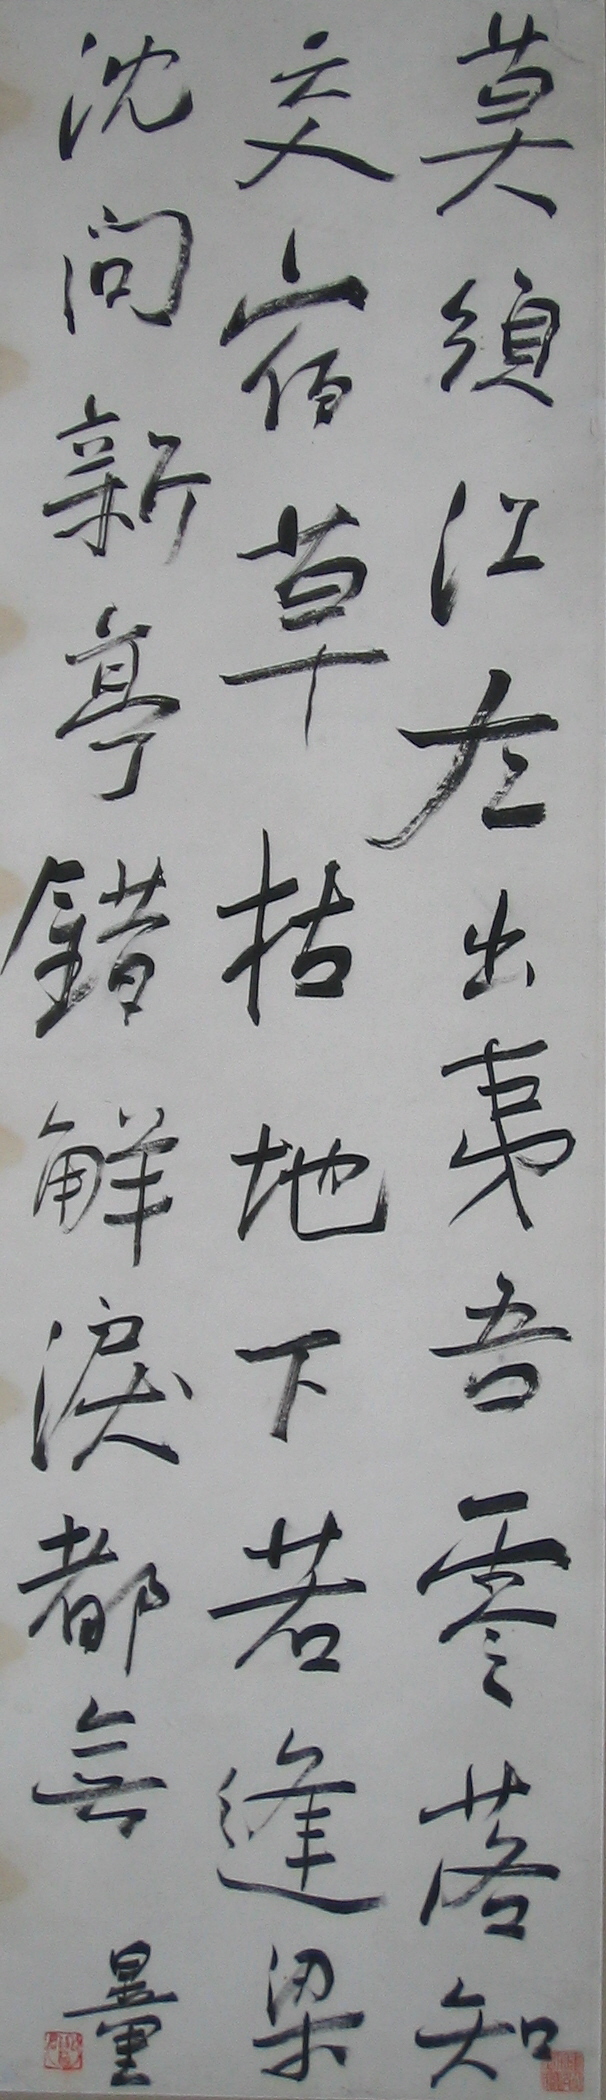 莫須江左出夷吾零落知
交宿草枯地下若逢梁
沈問新亭錯解淚都無 量